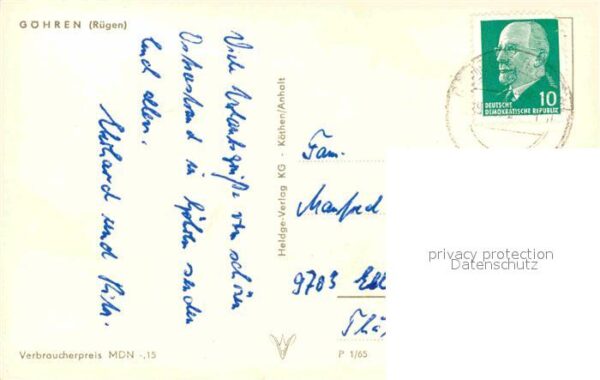 GÖHREN (Rügen)
Viele Urlaubsgrüße vom schönen
Ostseestrand in Göhren senden
Euch allen
Eberhard und
Heldge-Verlag KG - Köthen/Anhalt
10
DEUTSCHE
DEMOKRATISCHE REPUBLIK
Fam.
Manfred
9703
Thü
privacy protection
Datenschutz
Verbraucherpreis MDN -,15
P 1/65